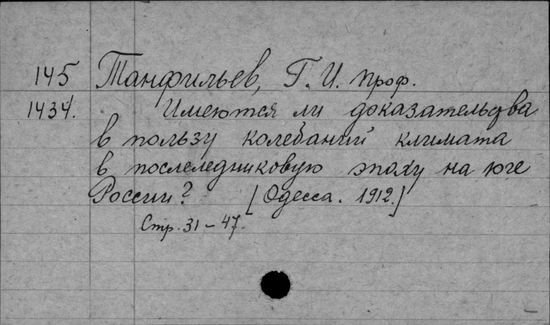 145 Танфильев, Г. И. проф.
1434. Имеются ли доказательства
в пользу колебаний климата
в последниковую эпоху на юге
России? [Одесса. 1912.]
Стр. 31-47.